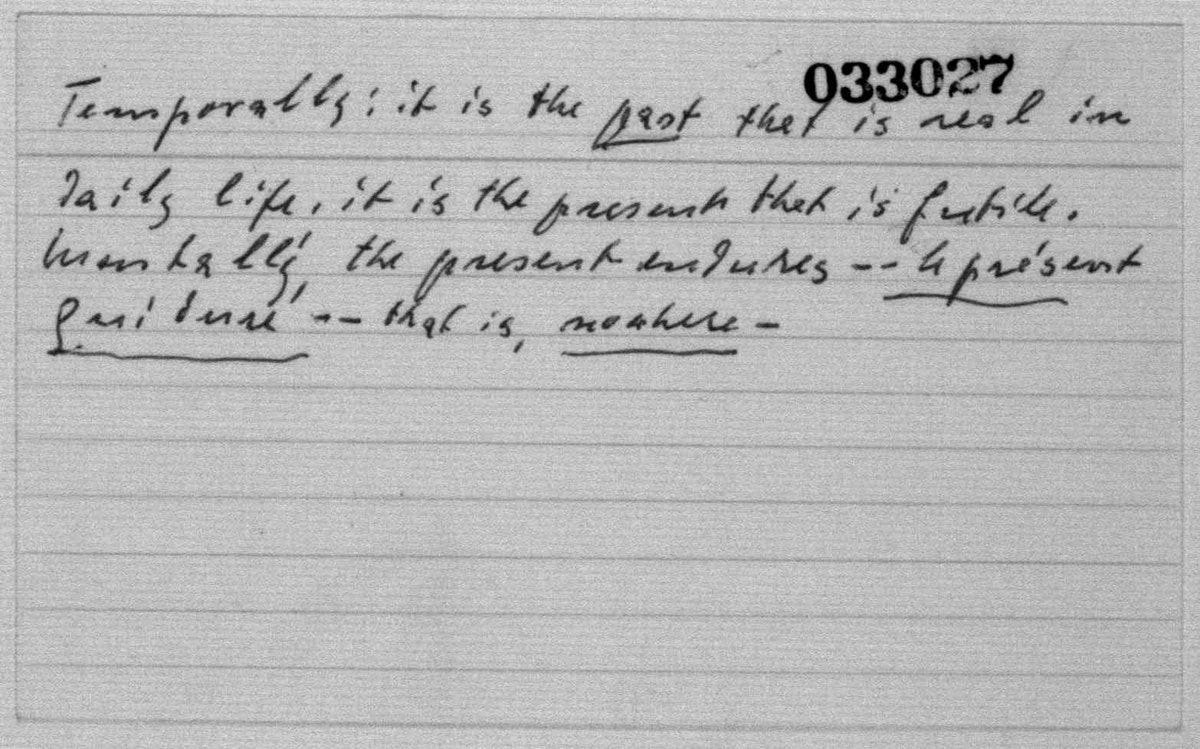 033027
Temporally: it is the past that is real in
daily life, it is the present that is futile.
Mentally, the present endures -- le présent
qui dure -- that is, nowhere -